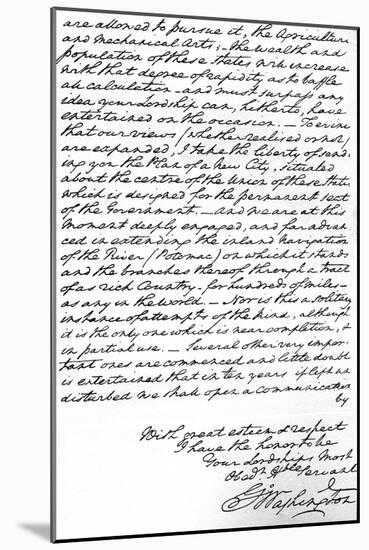 are allowed to pursue it, the Agriculture
and Mechanical Arts; – the wealth and
population of these States will increase
with that degree of rapidity, as to baffle
all calculation – and must surpass any
idea your Lordship can, hitherto, have
entertained on the occasion. – To evince
that our views (whether realised or not)
are expanded, I take the liberty of send-
ing you the Plan of a new City, situated
about the centre of the Union of these States,
which is designed for the permanent seat
of the Government. – And we are at this
moment deeply engaged, and far advan-
ced in extending the inland navigation
of the River (Potomac) on which it stands
and the branches thereof through a tract
of as rich Country – for hundreds of miles –
as any in the world. – Nor is this a solitary
instance of attempts of the kind, although
it is the only one which is near completion, &
in partial use. – Several other very impor-
tant ones are commenced and little doubt
is entertained that in ten years if left un
disturbed we shall open a communication
by
With great esteem & respect
I have the honor to be
Your Lordships Most
Obedt Hble Servant
Go Washington